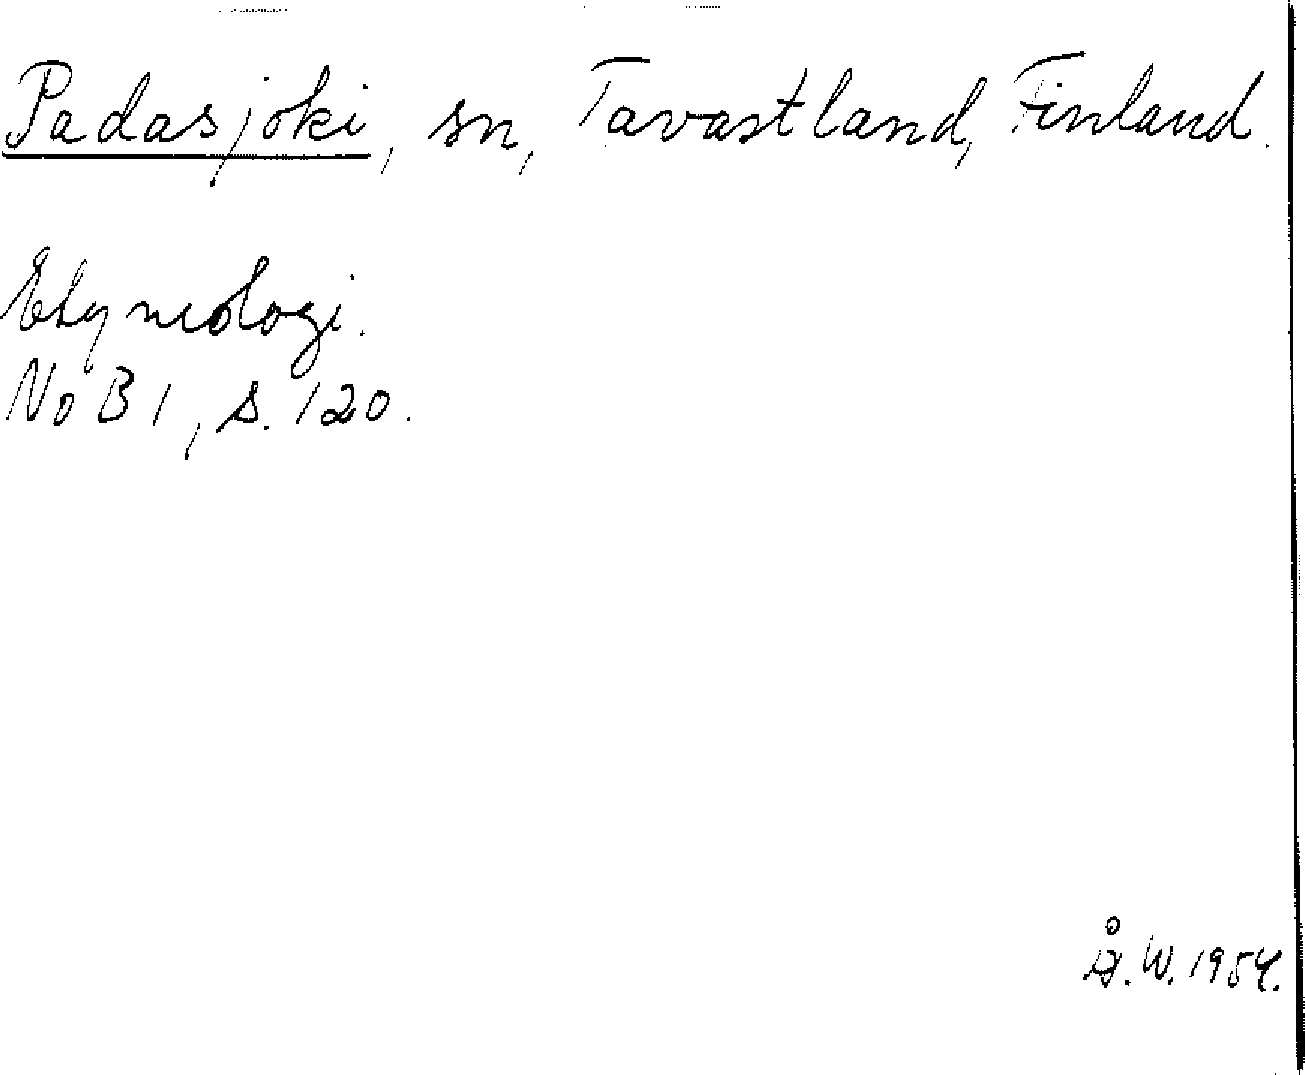 Padasjoki, sn, Tavastland, Finland.
Etymologi.
NoB 1, s. 120.
Å.W. 1954.